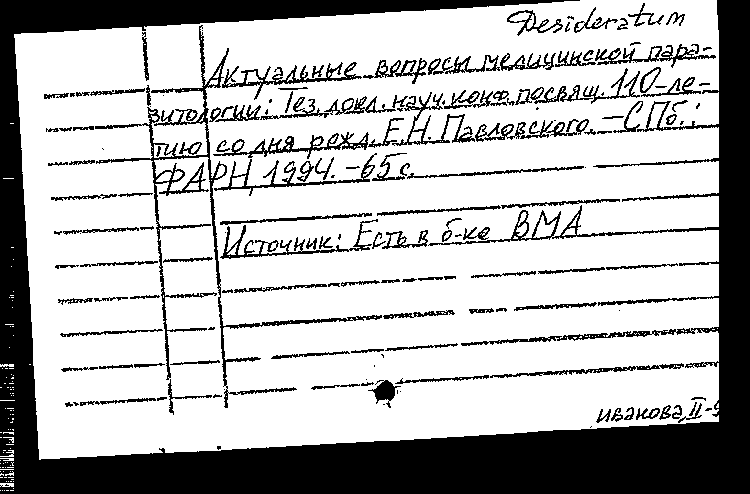 Desideratum
Актуальные вопросы медицинской пара-
зитологии: Тез. докл. науч. конф. посвящ. 110-ле-
тию со дня рожд. Е.Н. Павловского. - СПб.:
ФАРН, 1994. - 65 с.
Источник: Есть в б-ке ВМА
Иванова, II-9